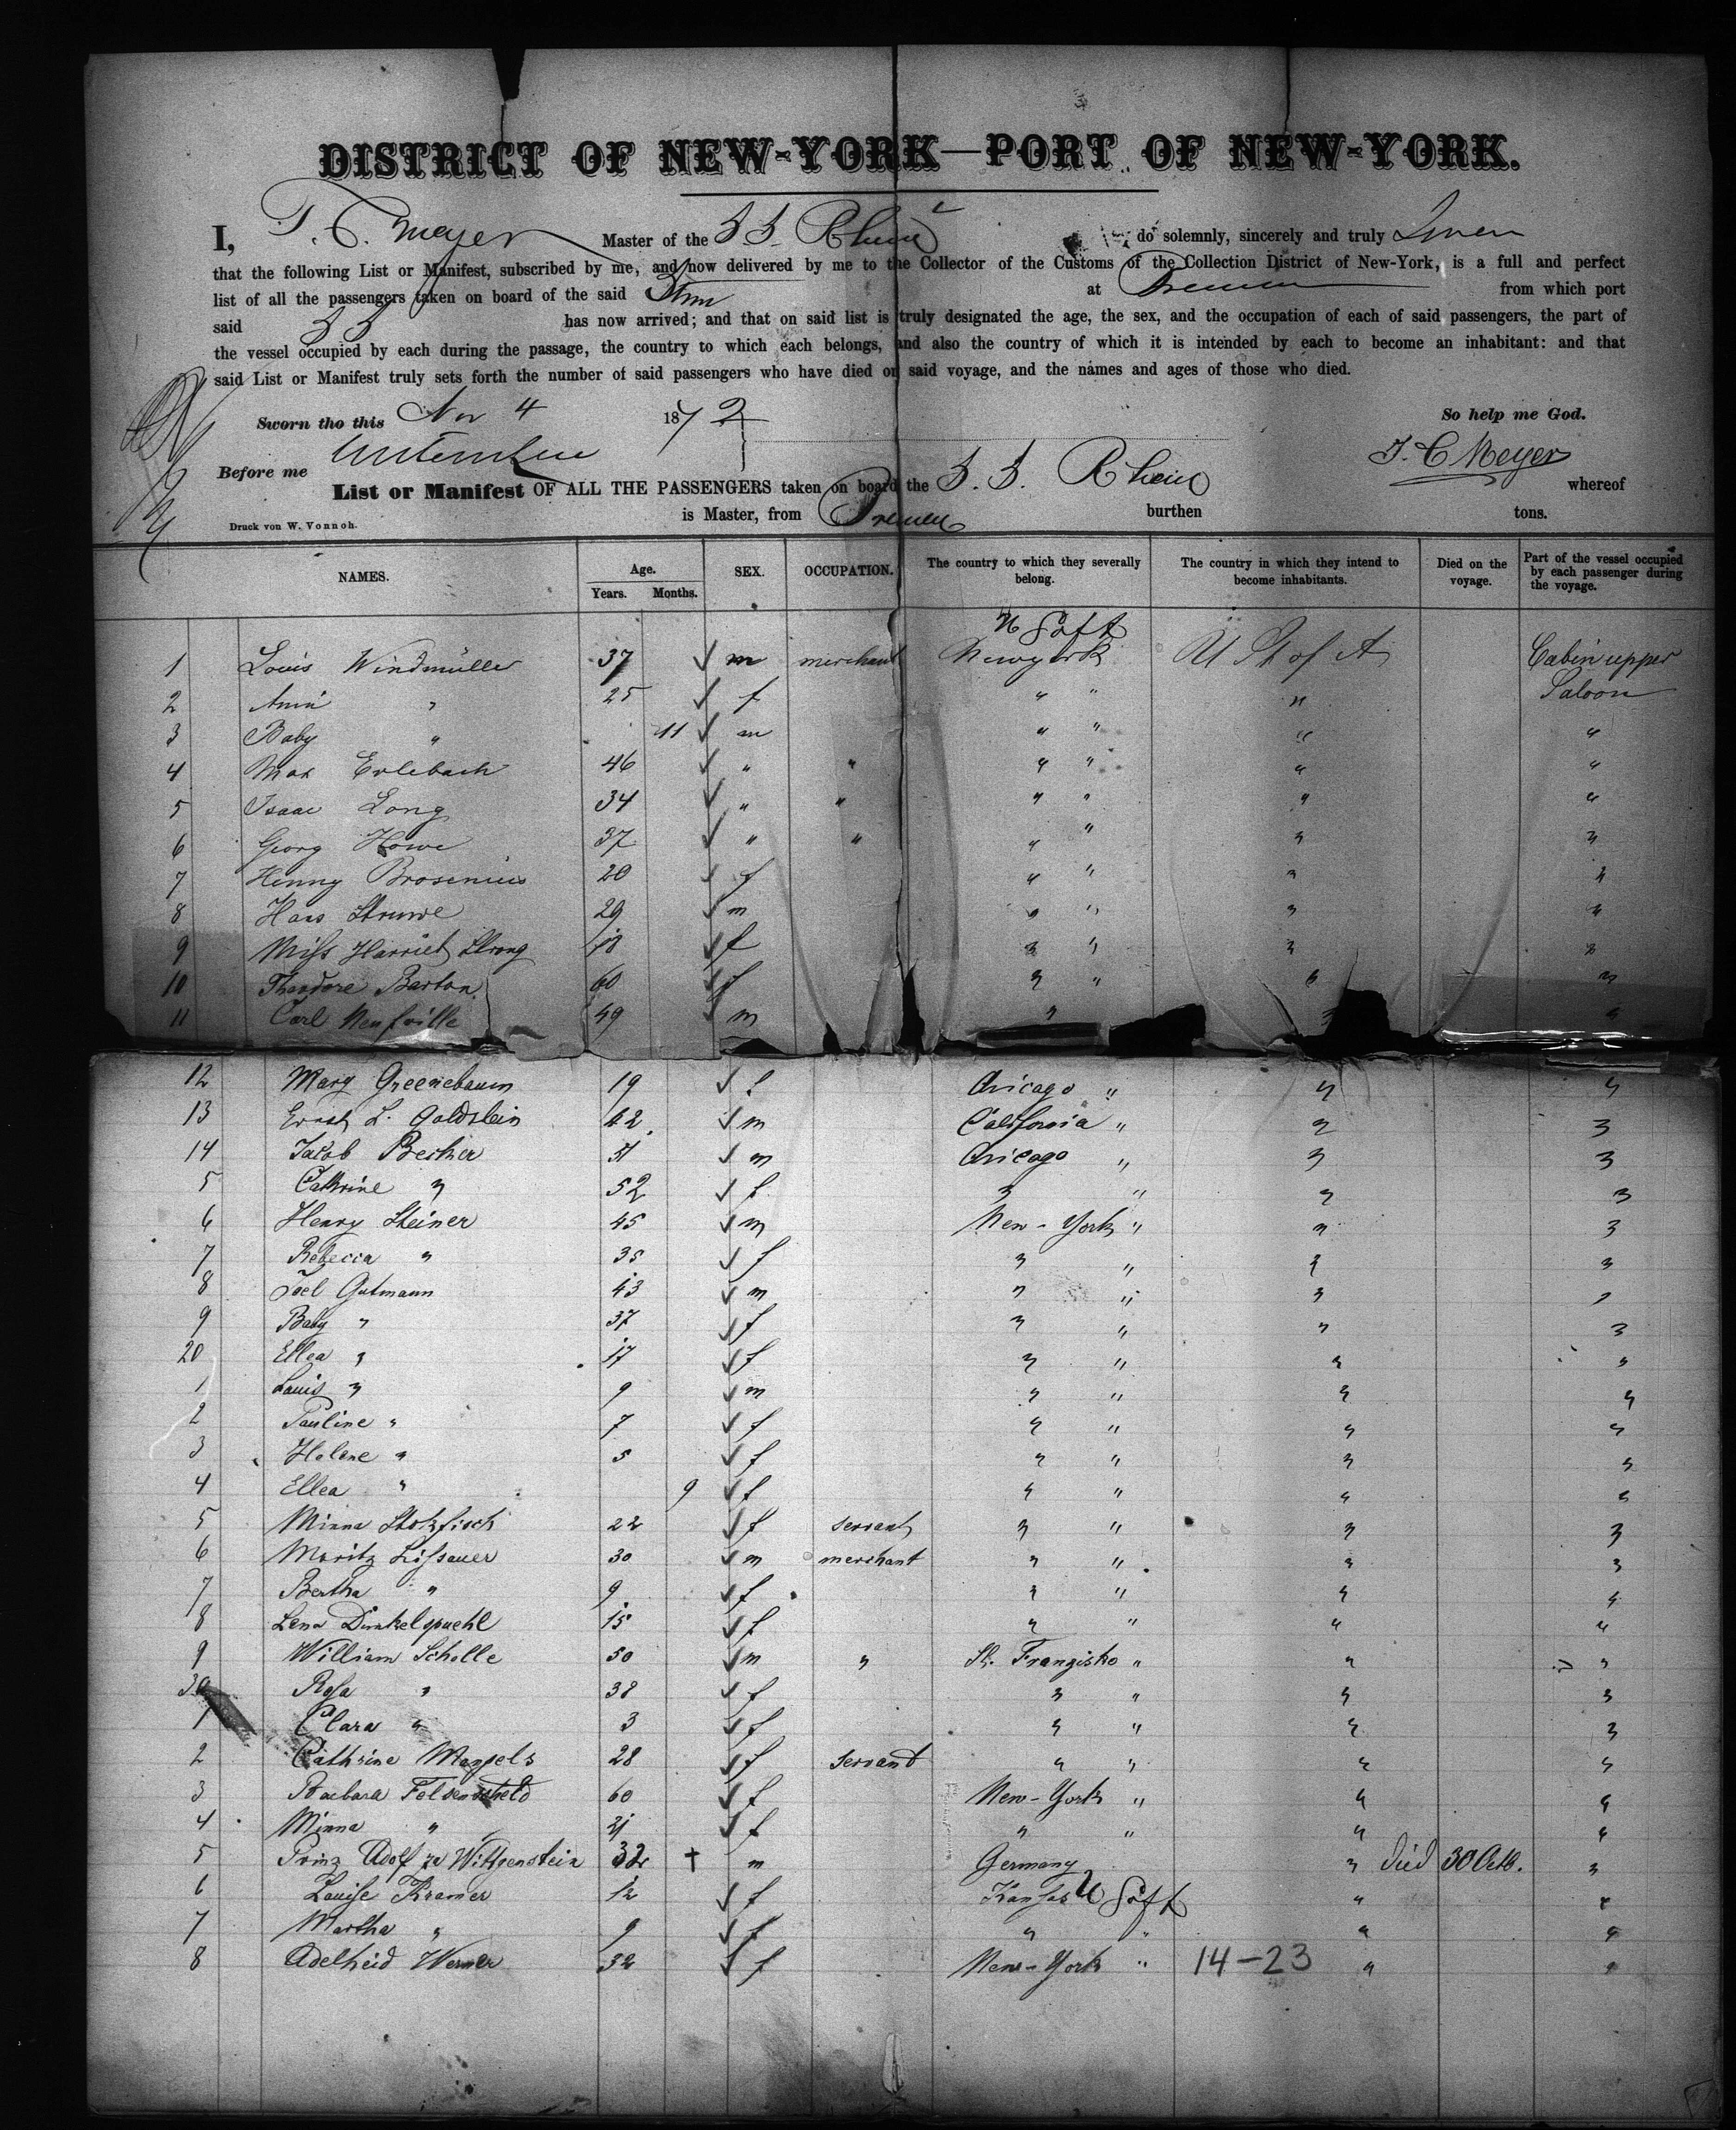 DISTRICT OF NEW-YORK—PORT OF NEW-YORK.
I, J. C. Meyer Master of the S. S. Rhein do solemnly, sincerely and truly Swear
that the following List or Manifest, subscribed by me, and now delivered by me to the Collector of the Customs of the Collection District of New-York, is a full and perfect
list of all the passengers taken on board of the said Stm at Bremen from which port
said S S has now arrived; and that on said list is truly designated the age, the sex, and the occupation of each of said passengers, the part of
the vessel occupied by each during the passage, the country to which each belongs, and also the country of which it is intended by each to become an inhabitant: and that
said List or Manifest truly sets forth the number of said passengers who have died on said voyage, and the names and ages of those who died.
Sworn tho this Nov 4 1872 So help me God.
Before me J. C. Meyer
List or Manifest OF ALL THE PASSENGERS taken on board the S. S. Rhein whereof
is Master, from Bremen burthen tons.
Druck von W. Vonnoh.
NAMES. Age. Years. Months. SEX. OCCUPATION. The country to which they severally belong. The country in which they intend to become inhabitants. Died on the voyage. Part of the vessel occupied by each passenger during the voyage.
1 Louis Windmüller 37 ✓ m merchant Newyork U St of A Cabin upper
2 " 25 ✓ f " " " Saloon
3 Baby " 11 ✓ m " " " "
4 Max Erlebach 46 ✓ " " " " " "
5 Isaac Long 34 ✓ " " " " " "
6 Georg Howe 37 ✓ " " " " " "
7 Henny Brosenius 20 ✓ f " " " "
8 Hans Struwe 29 ✓ m " " " "
9 Miss Harriet Strong 18 ✓ f " " " "
10 Theodore Barton 60 ✓ f " " " "
11 Carl Neufville 49 ✓ m " " "
12 Mary Greenebaum 19 ✓ f Chicago " " "
13 Ernst L. Goldstein 62 ✓ m California " " "
14 Jacob Becker 51 ✓ m Chicago " " "
5 Cathrine " 52 ✓ f " " " "
6 Henry Steiner 45 ✓ m New-York " " "
7 Rebecca " 35 ✓ f " " " "
8 Joel Gutmann 43 ✓ m " " " "
9 Baby " 37 ✓ f " " " "
20 Ellea " 17 ✓ f " " " "
1 Louis " 9 ✓ m " " " "
2 Pauline " 7 ✓ f " " " "
3 Helene " 5 ✓ f " " " "
4 Ellea " 9 ✓ f " " " "
5 Minna Stokfisch 22 ✓ f servant " " " "
6 Moritz Lissauer 30 ✓ m merchant " " " "
7 Bertha " 9 ✓ f " " " "
8 Lena Dinkelspuehl 15 ✓ f " " " "
9 William Scholle 50 ✓ m " St. Franzisko " " "
30 Rosa " 38 ✓ f " " " "
1 Clara " 3 ✓ f " " " "
2 Cathrine Wappels 28 ✓ f servant " " " "
3 Barbara 60 ✓ f New-York " " "
4 Minna " 21 ✓ f " " " "
5 Prinz Adolf zu Wittgenstein 32 † m Germany " died 30 Octb. "
6 Louise Kramer 12 ✓ f Kansas " "
7 Martha " 9 ✓ f " " " "
8 Adelheid Werner 32 ✓ f New-York " 14-23 " "